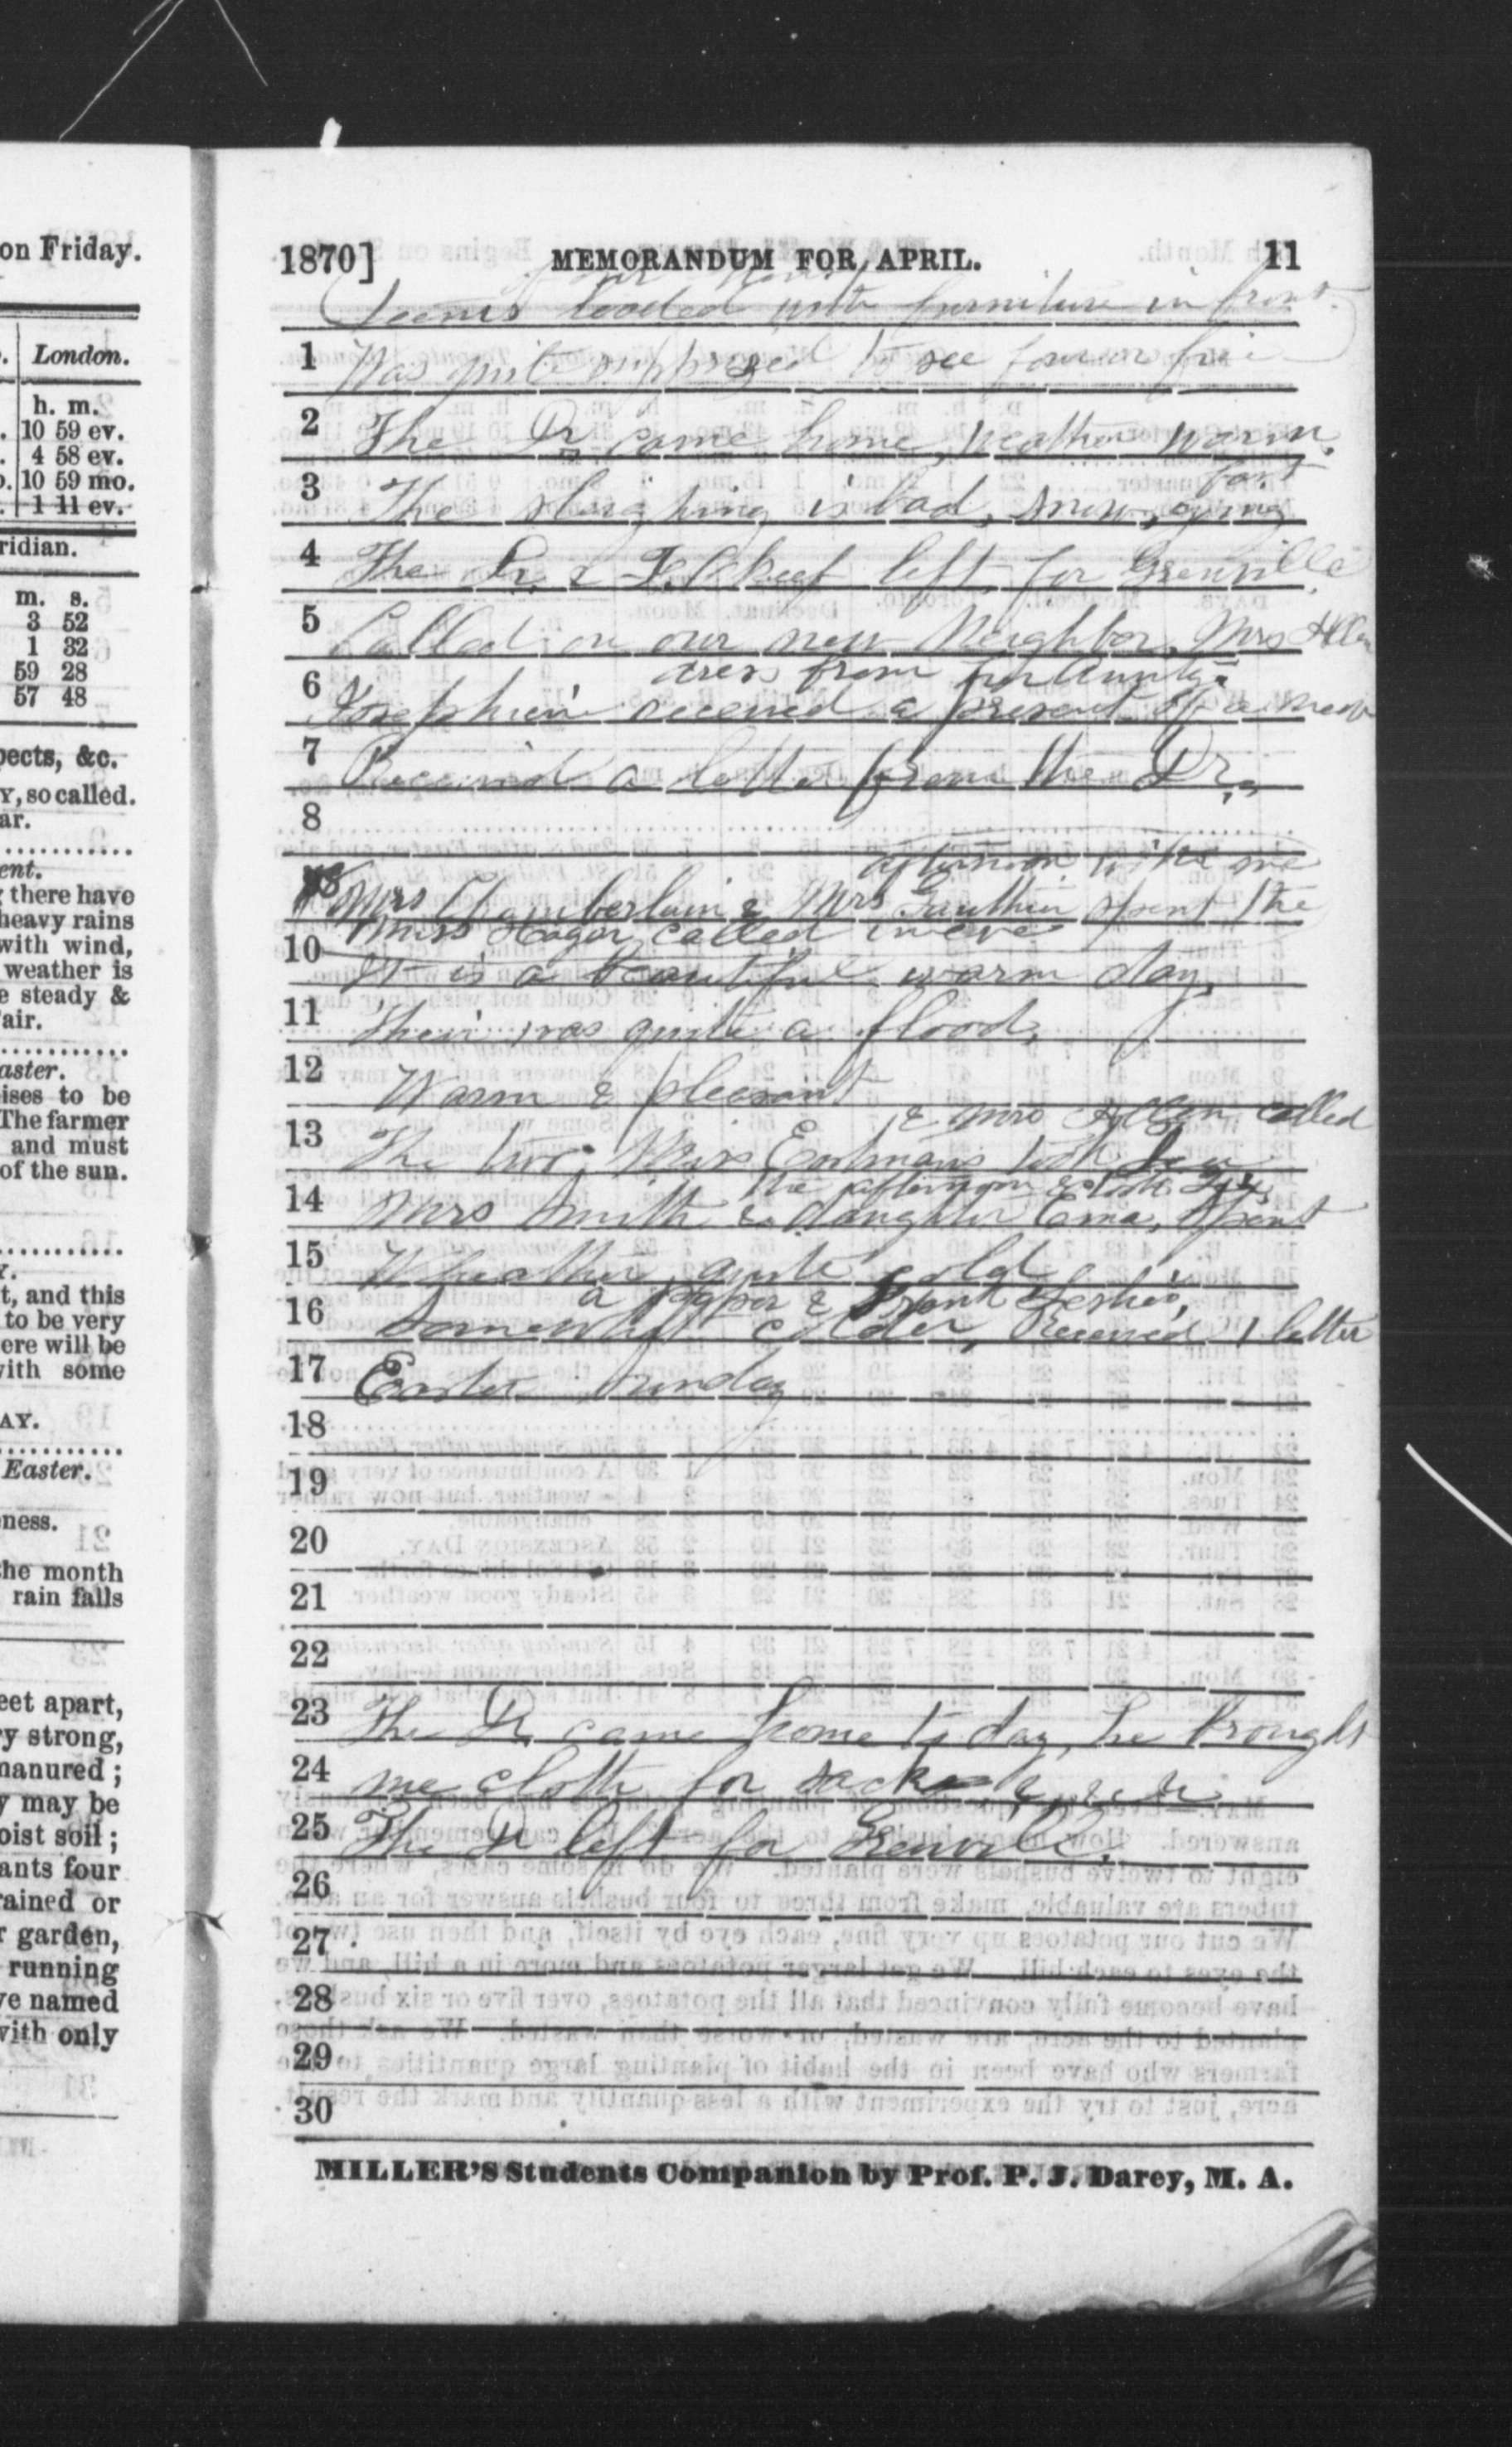 on Friday.
London.
h. m.
10 59 ev.
4 58 ev.
10 59 mo.
1 11 ev.
ridian.
m. s.
3 52
1 32
59 28
57 48
pects, &c.
Y, so called.
ar.
ent.
there have
heavy rains
with wind,
weather is
e steady &
air.
aster.
ises to be
The farmer
and must
of the sun.
Y.
t, and this
to be very
ere will be
with some
AY.
Easter.
ness.
the month
rain falls
eet apart,
y strong,
manured ;
y may be
oist soil ;
ants four
rained or
r garden,
running
ve named
with only
1870] MEMORANDUM FOR APRIL. 11
of our house
Teems loaded with furniture in front
1 Was quite supprized to see four or five
2 The Dr came home, weather warm,
fast
3 The sleighing is bad, snow, going
4 The Dr & left for Grenville
5 Called on our new Neighbor, Mrs Allen
dress from her Aunty.
6 Josephien received a present of a new
7 Received a letter from the Dr.,
8
afternoon with me
Mrs Chamberlain & Mrs Gauthier spent the
Miss Hagar called in eve
10 It is a beautiful warm day,
11 Their was quite a flood,
12 Warm & pleasant
& Mrs Allen called
13 The two, Miss Eastmans took tea
the afternoon & took Tea,
14 Mrs Smith & daughter Ema, spent
15 Wheather quite cold
a paper & Frank Leslie's,
16 Somewhat colder, Received 1 letter
17 Easter Sunday
18
19
20
21
22
23 The Dr came home to day, he brought
24 me cloth for sack &
25 The Dr left for Grenville.
26
27
28
29
30
MILLER'S Students Companion by Prof. P. J. Darey, M. A.